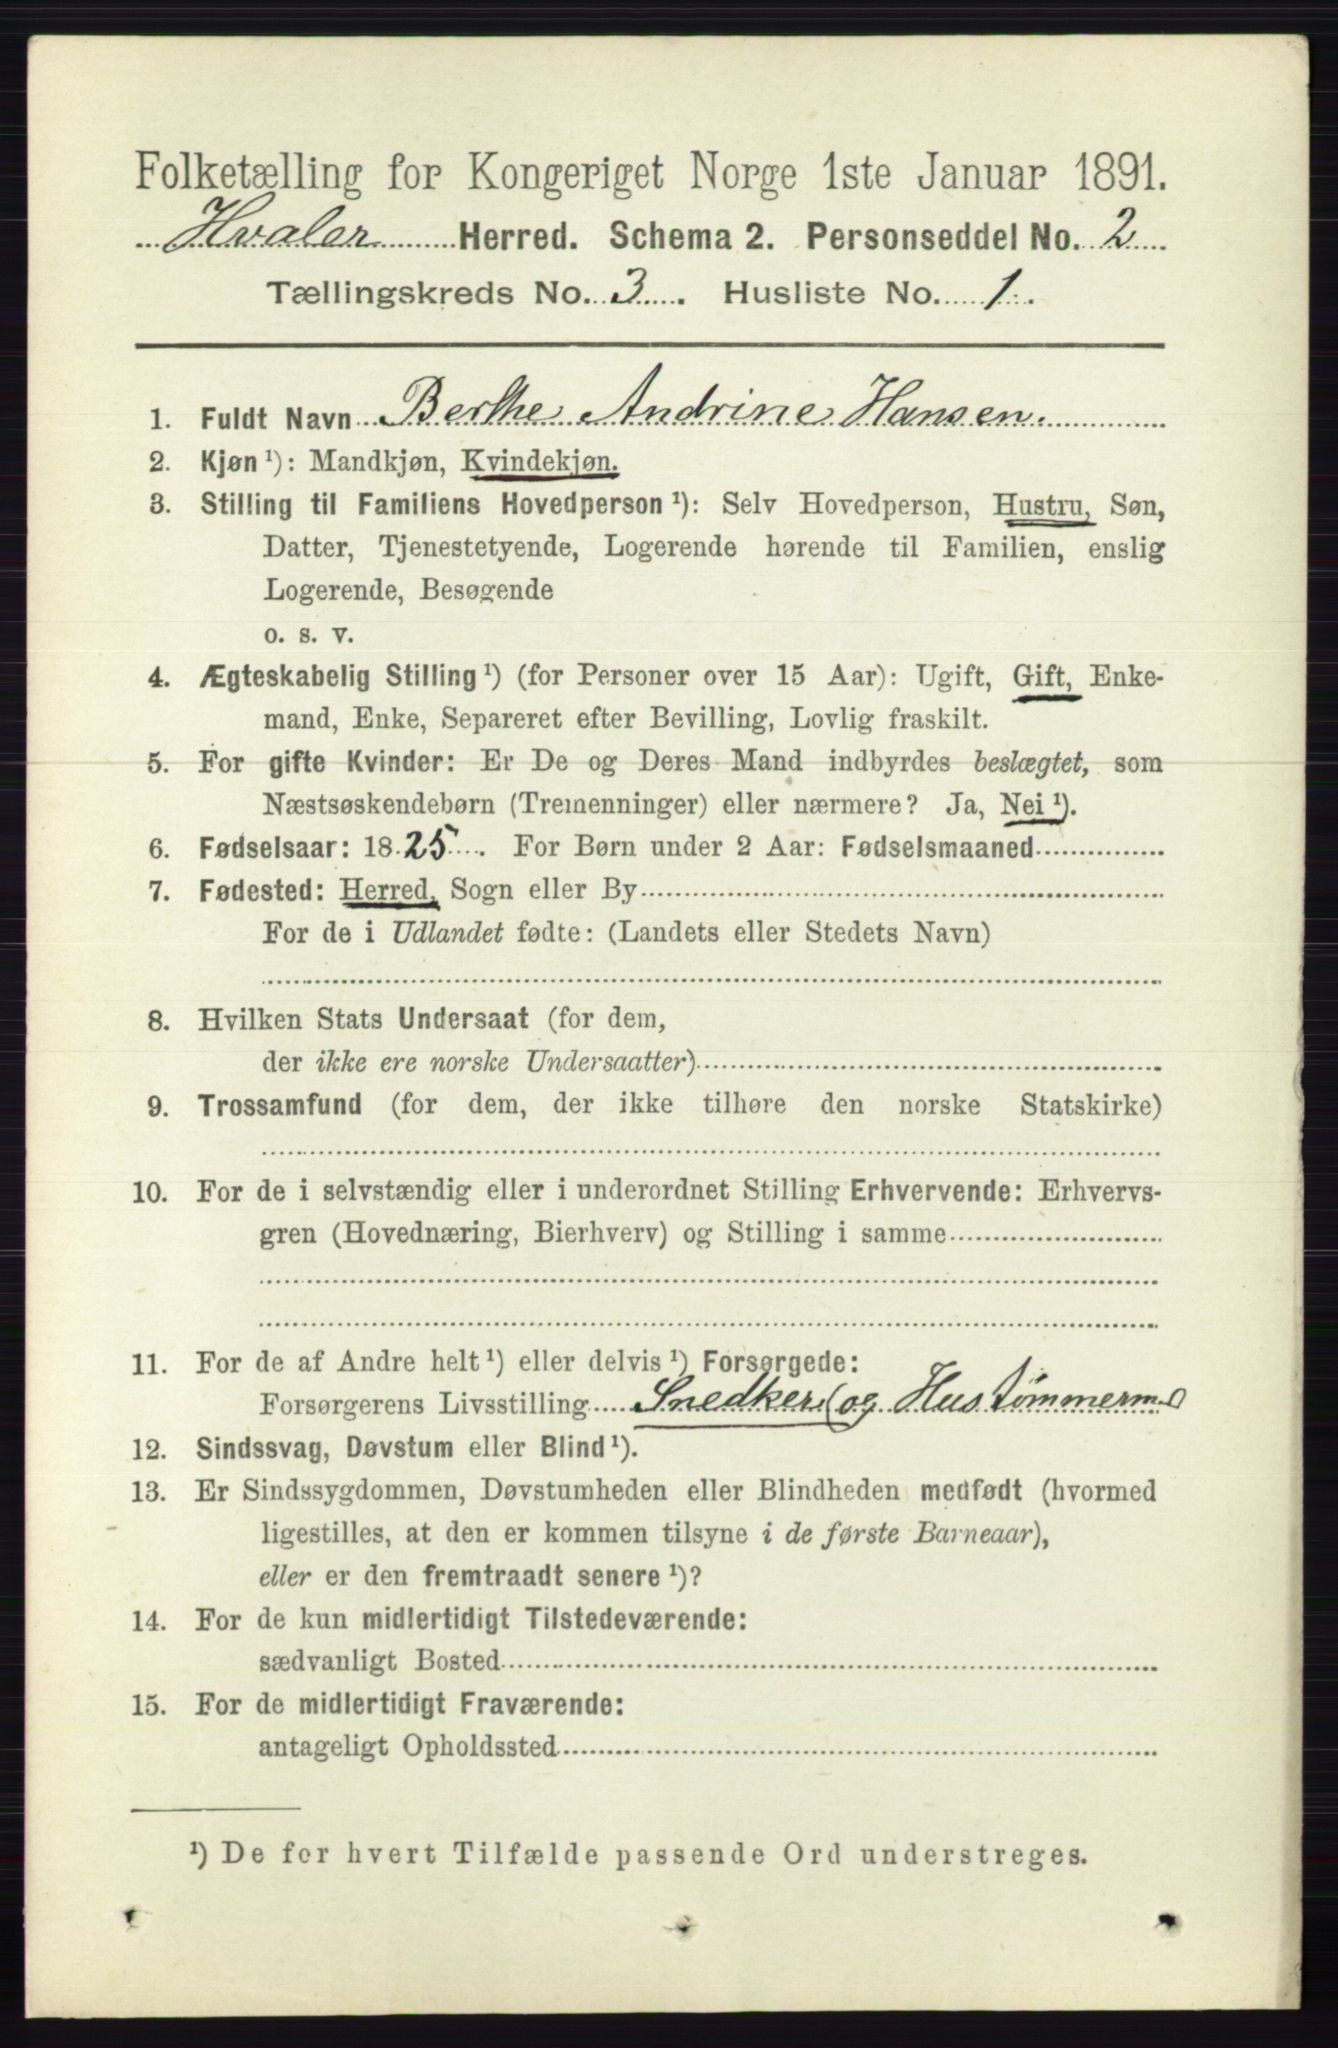 Folketælling for Kongeriget Norge 1ste Januar 1891.
Hvaler Herred. Schema 2. Personseddel No. 2
Tællingskreds No. 3. Husliste No. 1.
1. Fuldt Navn Berthe Andrine Hansen.
2. Kjøn ¹): Mandkjøn, Kvindekjøn.
3. Stilling til Familiens Hovedperson ¹): Selv Hovedperson, Hustru, Søn,
Datter, Tjenestetyende, Logerende hørende til Familien, enslig
Logerende, Besøgende
o. s. v.
4. Ægteskabelig Stilling ¹) (for Personer over 15 Aar): Ugift, Gift, Enke-
mand, Enke, Separeret efter Bevilling, Lovlig fraskilt.
5. For gifte Kvinder: Er De og Deres Mand indbyrdes beslægtet, som
Næstsøskendebørn (Tremenninger) eller nærmere? Ja, Nei ¹).
6. Fødselsaar: 1825. For Børn under 2 Aar: Fødselsmaaned
7. Fødested: Herred, Sogn eller By
For de i Udlandet fødte: (Landets eller Stedets Navn)
8. Hvilken Stats Undersaat (for dem,
der ikke ere norske Undersaatter)
9. Trossamfund (for dem, der ikke tilhøre den norske Statskirke)
10. For de i selvstændig eller i underordnet Stilling Erhvervende: Erhvervs-
gren (Hovednæring, Bierhverv) og Stilling i samme
11. For de af Andre helt ¹) eller delvis ¹) Forsørgede:
Forsørgerens Livsstilling Snedker (og Hustømmerm.)
12. Sindssvag, Døvstum eller Blind ¹).
13. Er Sindssygdommen, Døvstumheden eller Blindheden medfødt (hvormed
ligestilles, at den er kommen tilsyne i de første Barneaar),
eller er den fremtraadt senere ¹)?
14. For de kun midlertidigt Tilstedeværende:
sædvanligt Bosted
15. For de midlertidigt Fraværende:
antageligt Opholdssted
¹) De for hvert Tilfælde passende Ord understreges.